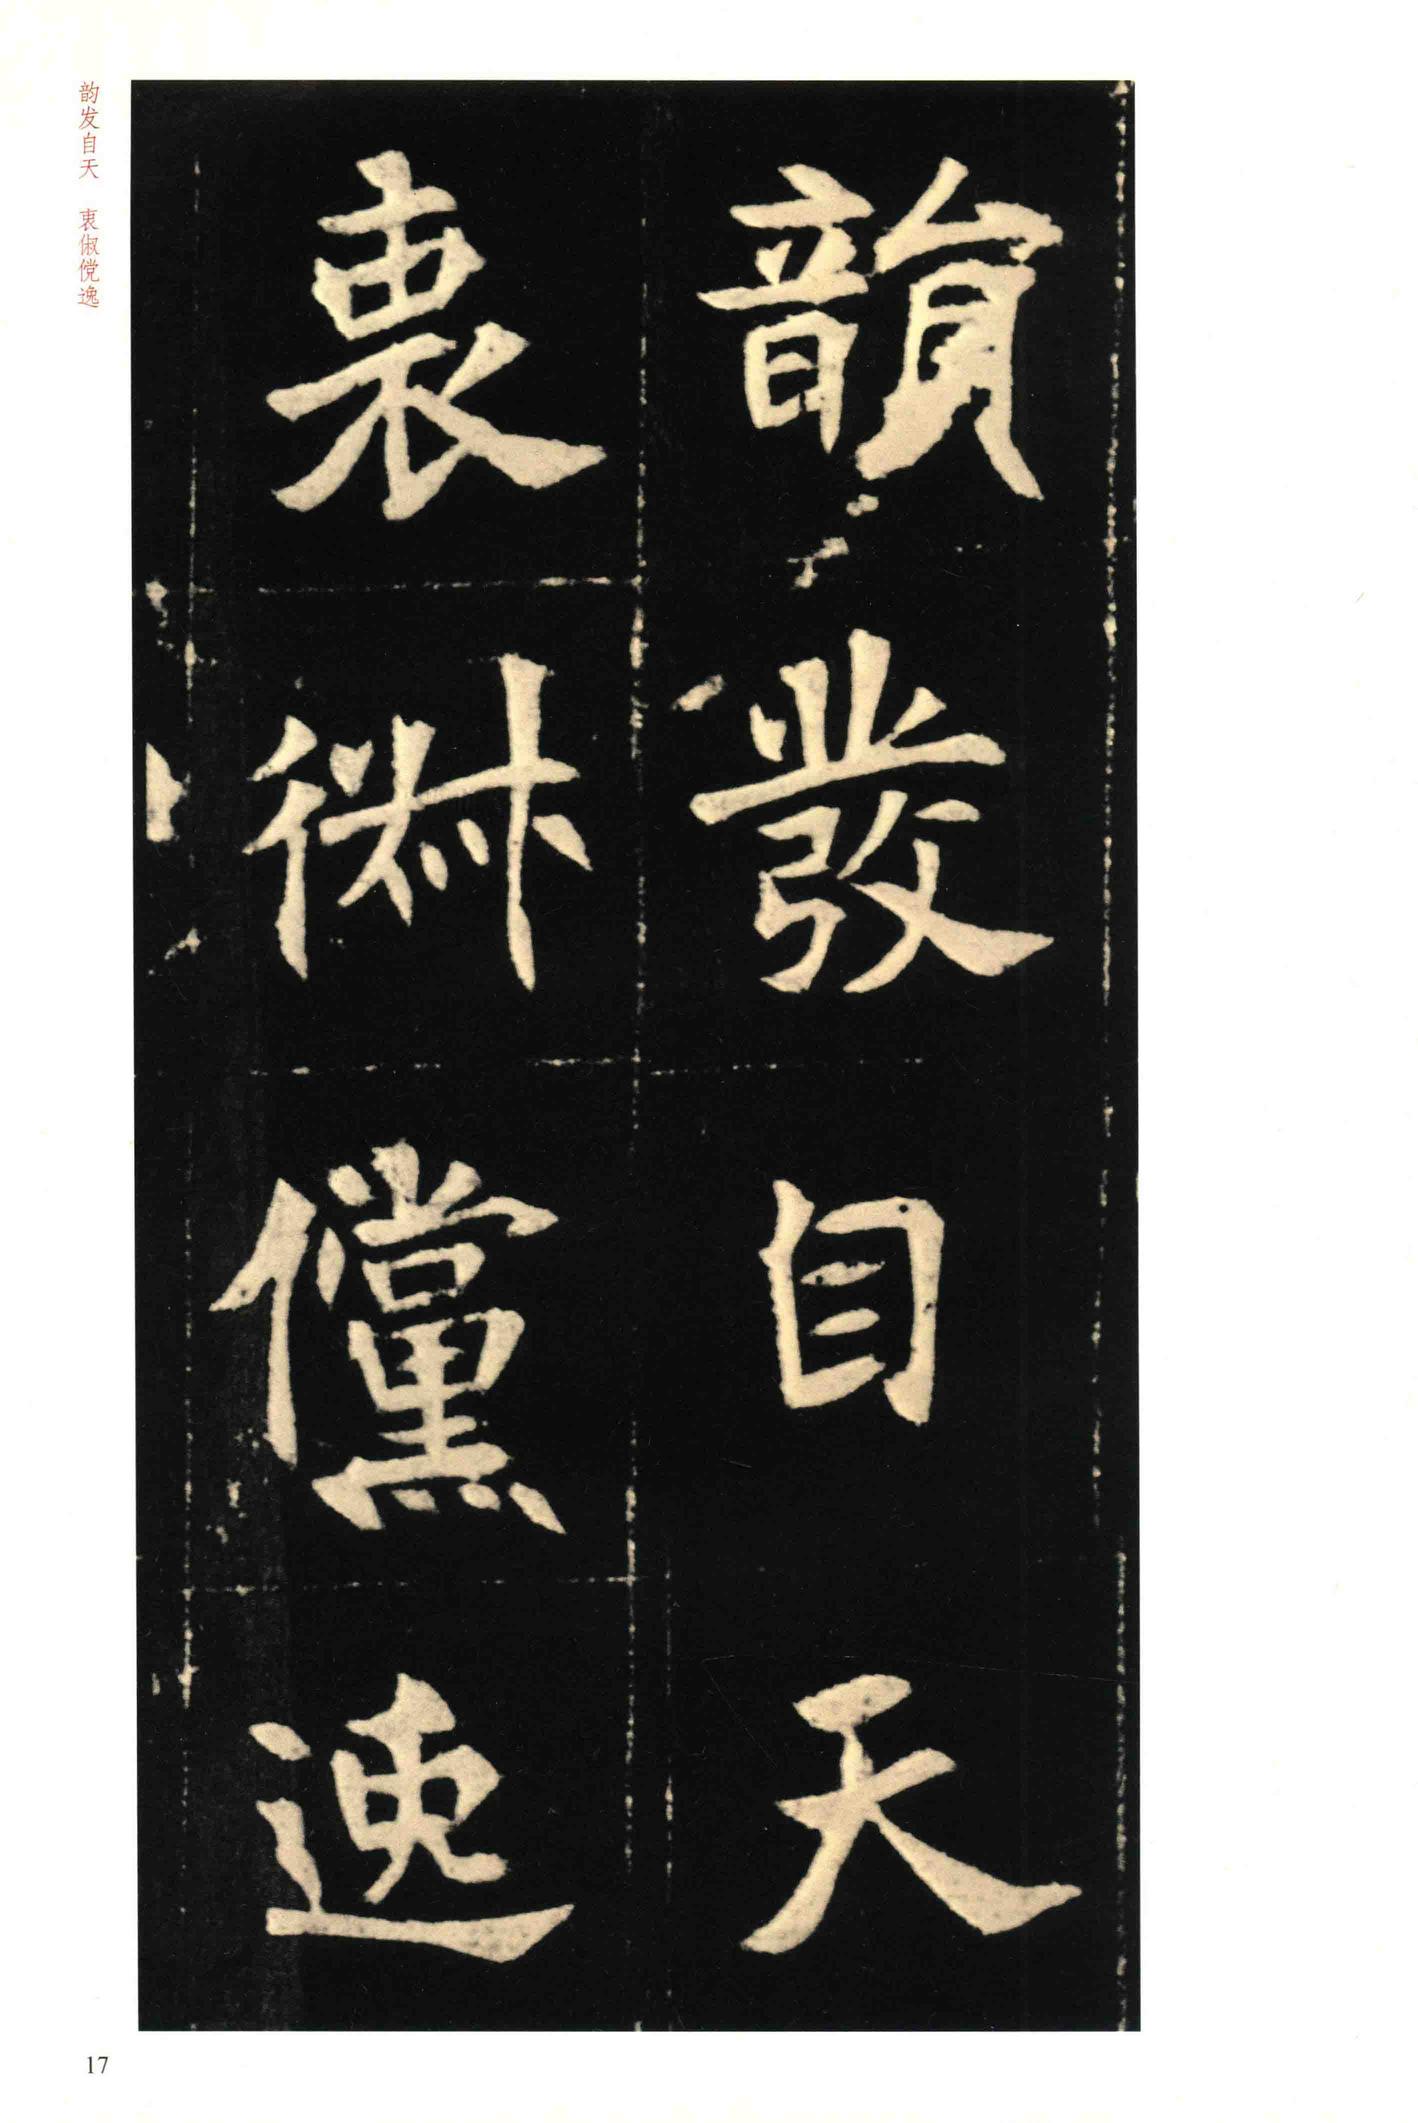 韻發自天
衷俶儻逸
韵发自天 衷俶傥逸
17